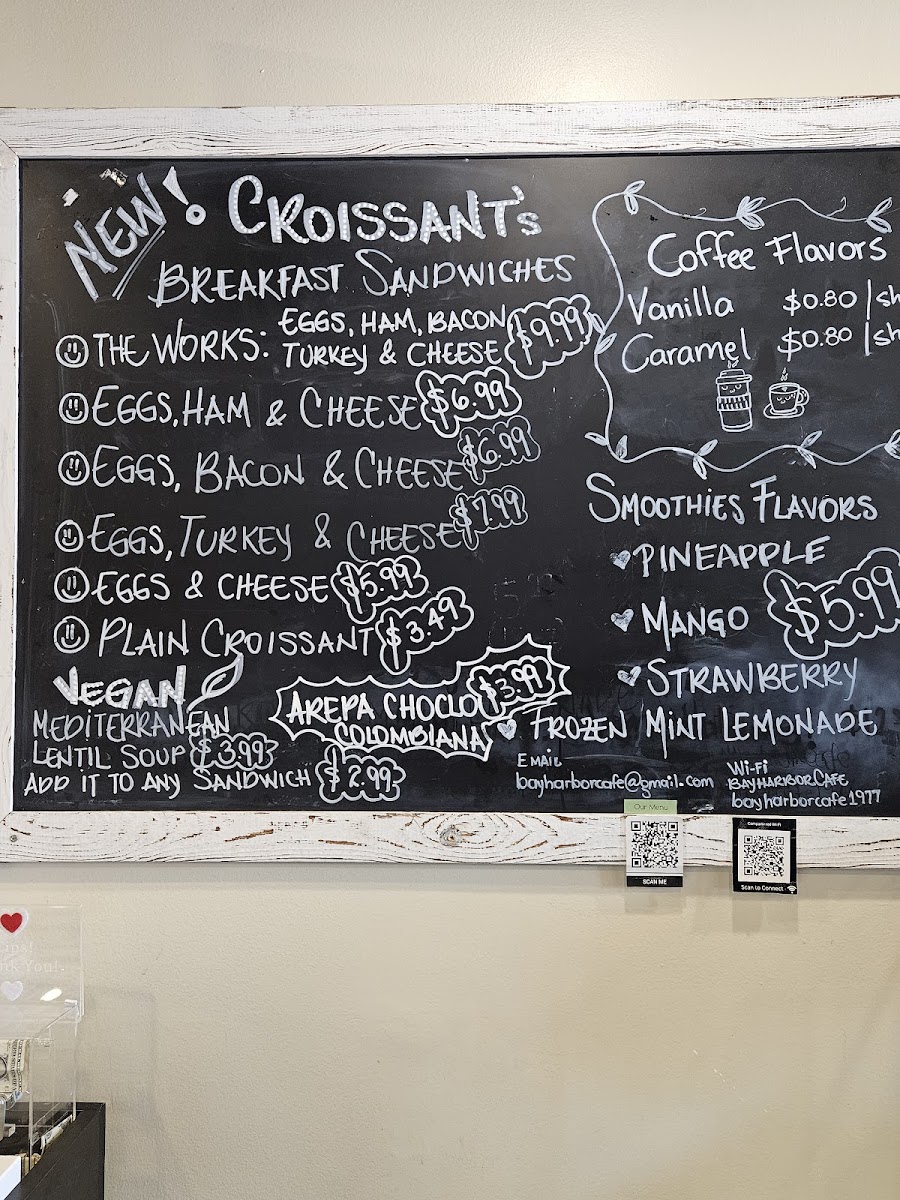 NEW!
CROISSANT's
BREAKFAST SANDWICHES
THE WORKS: EGGS, HAM, BACON
TURKEY & CHEESE $9.99
EGGS, HAM & CHEESE $6.99
EGGS, BACON & CHEESE $6.99
EGGS, TURKEY & CHEESE $7.99
EGGS & CHEESE $5.99
PLAIN CROISSANT $3.49
VEGAN
MEDITERRANEAN
LENTIL SOUP $3.99
ADD IT TO ANY SANDWICH $2.99
AREPA CHOCLO $3.99
COLOMBIANA
Coffee Flavors
Vanilla $0.80 | sh
Caramel $0.80 | sh
SMOOTHIES FLAVORS
PINEAPPLE
MANGO $5.99
STRAWBERRY
FROZEN MINT LEMONADE
EMAIL
bayharborcafe@gmail.com
Wi-Fi
BAYHARIBORCAFE
bayharborcafe1977
Our Menu
SCAN ME
Complimented Wi-Fi
Scan to Connect
Tips!
nk You!